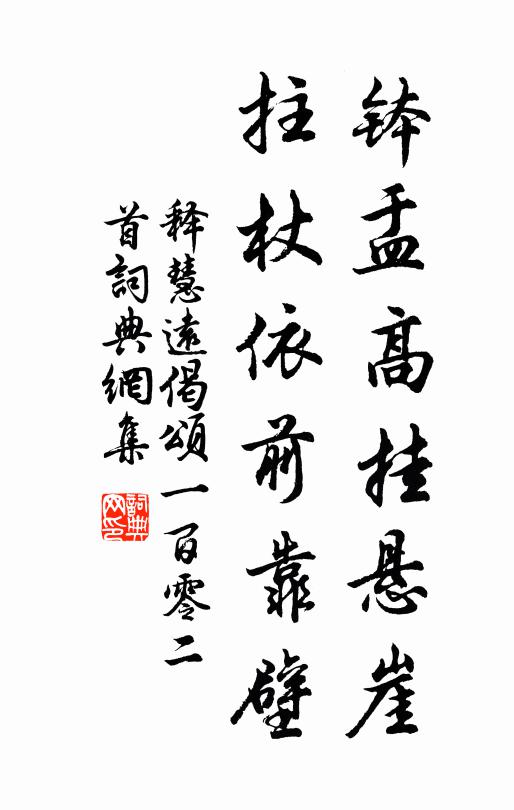 钵盂高挂悬崖
拄杖依前靠壁
释慧遠偈頌一百零二
首詞典網集
詞典
网印